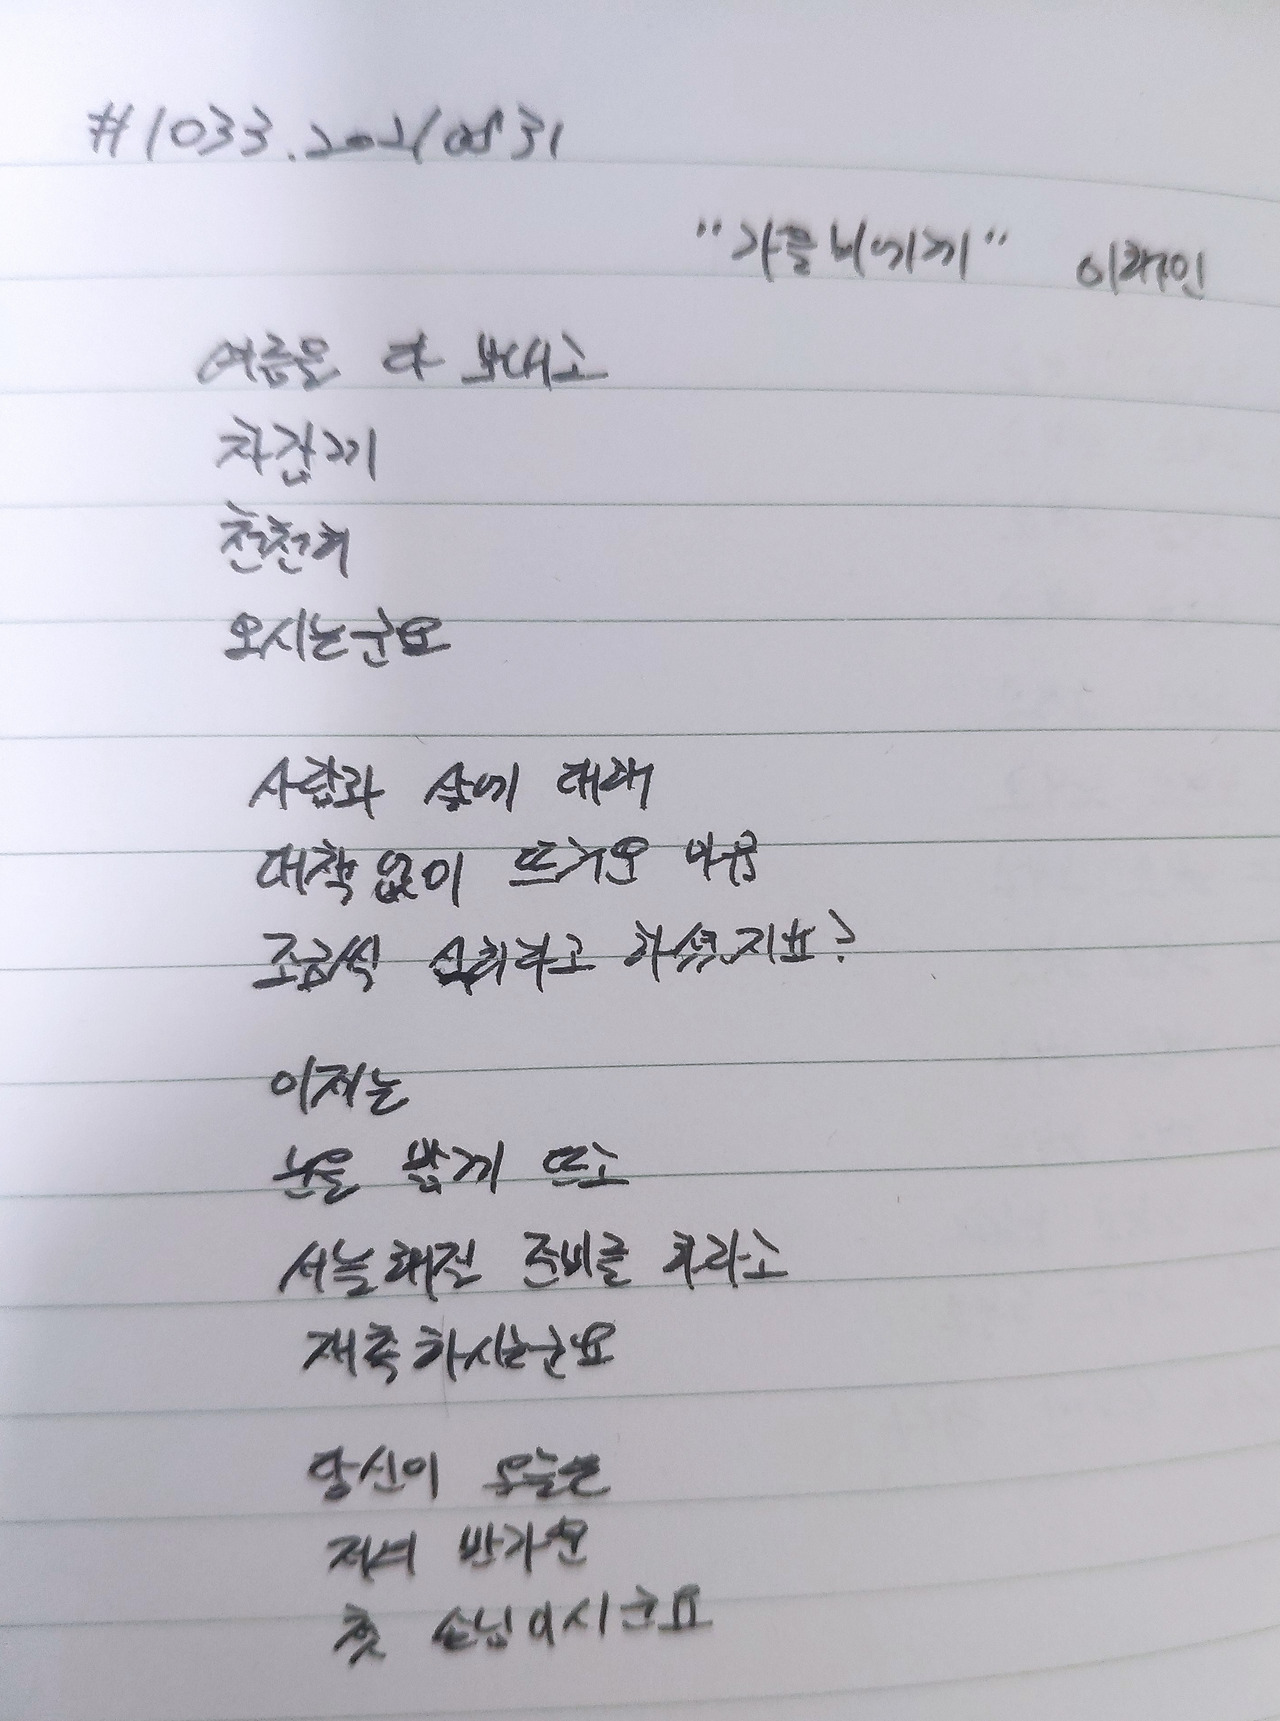 #1033.20210831
"가을비에게" 이해인
여름을 다 보내고
차갑게
천천히
오시는군요
사람과 삶에 대해
대책없이 뜨거운 마음
조금씩 식히라고 하셨지요?
이제는
눈을 맑게 뜨고
서늘해질 준비를 하라고
재촉하시는군요
당신이 오늘은
저의 반가운
첫 손님이시군요